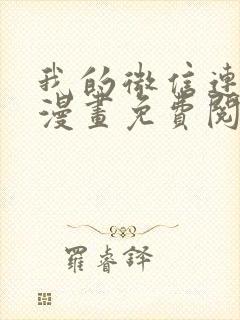 我的微信連
漫畫免費閱
羅睿鐸